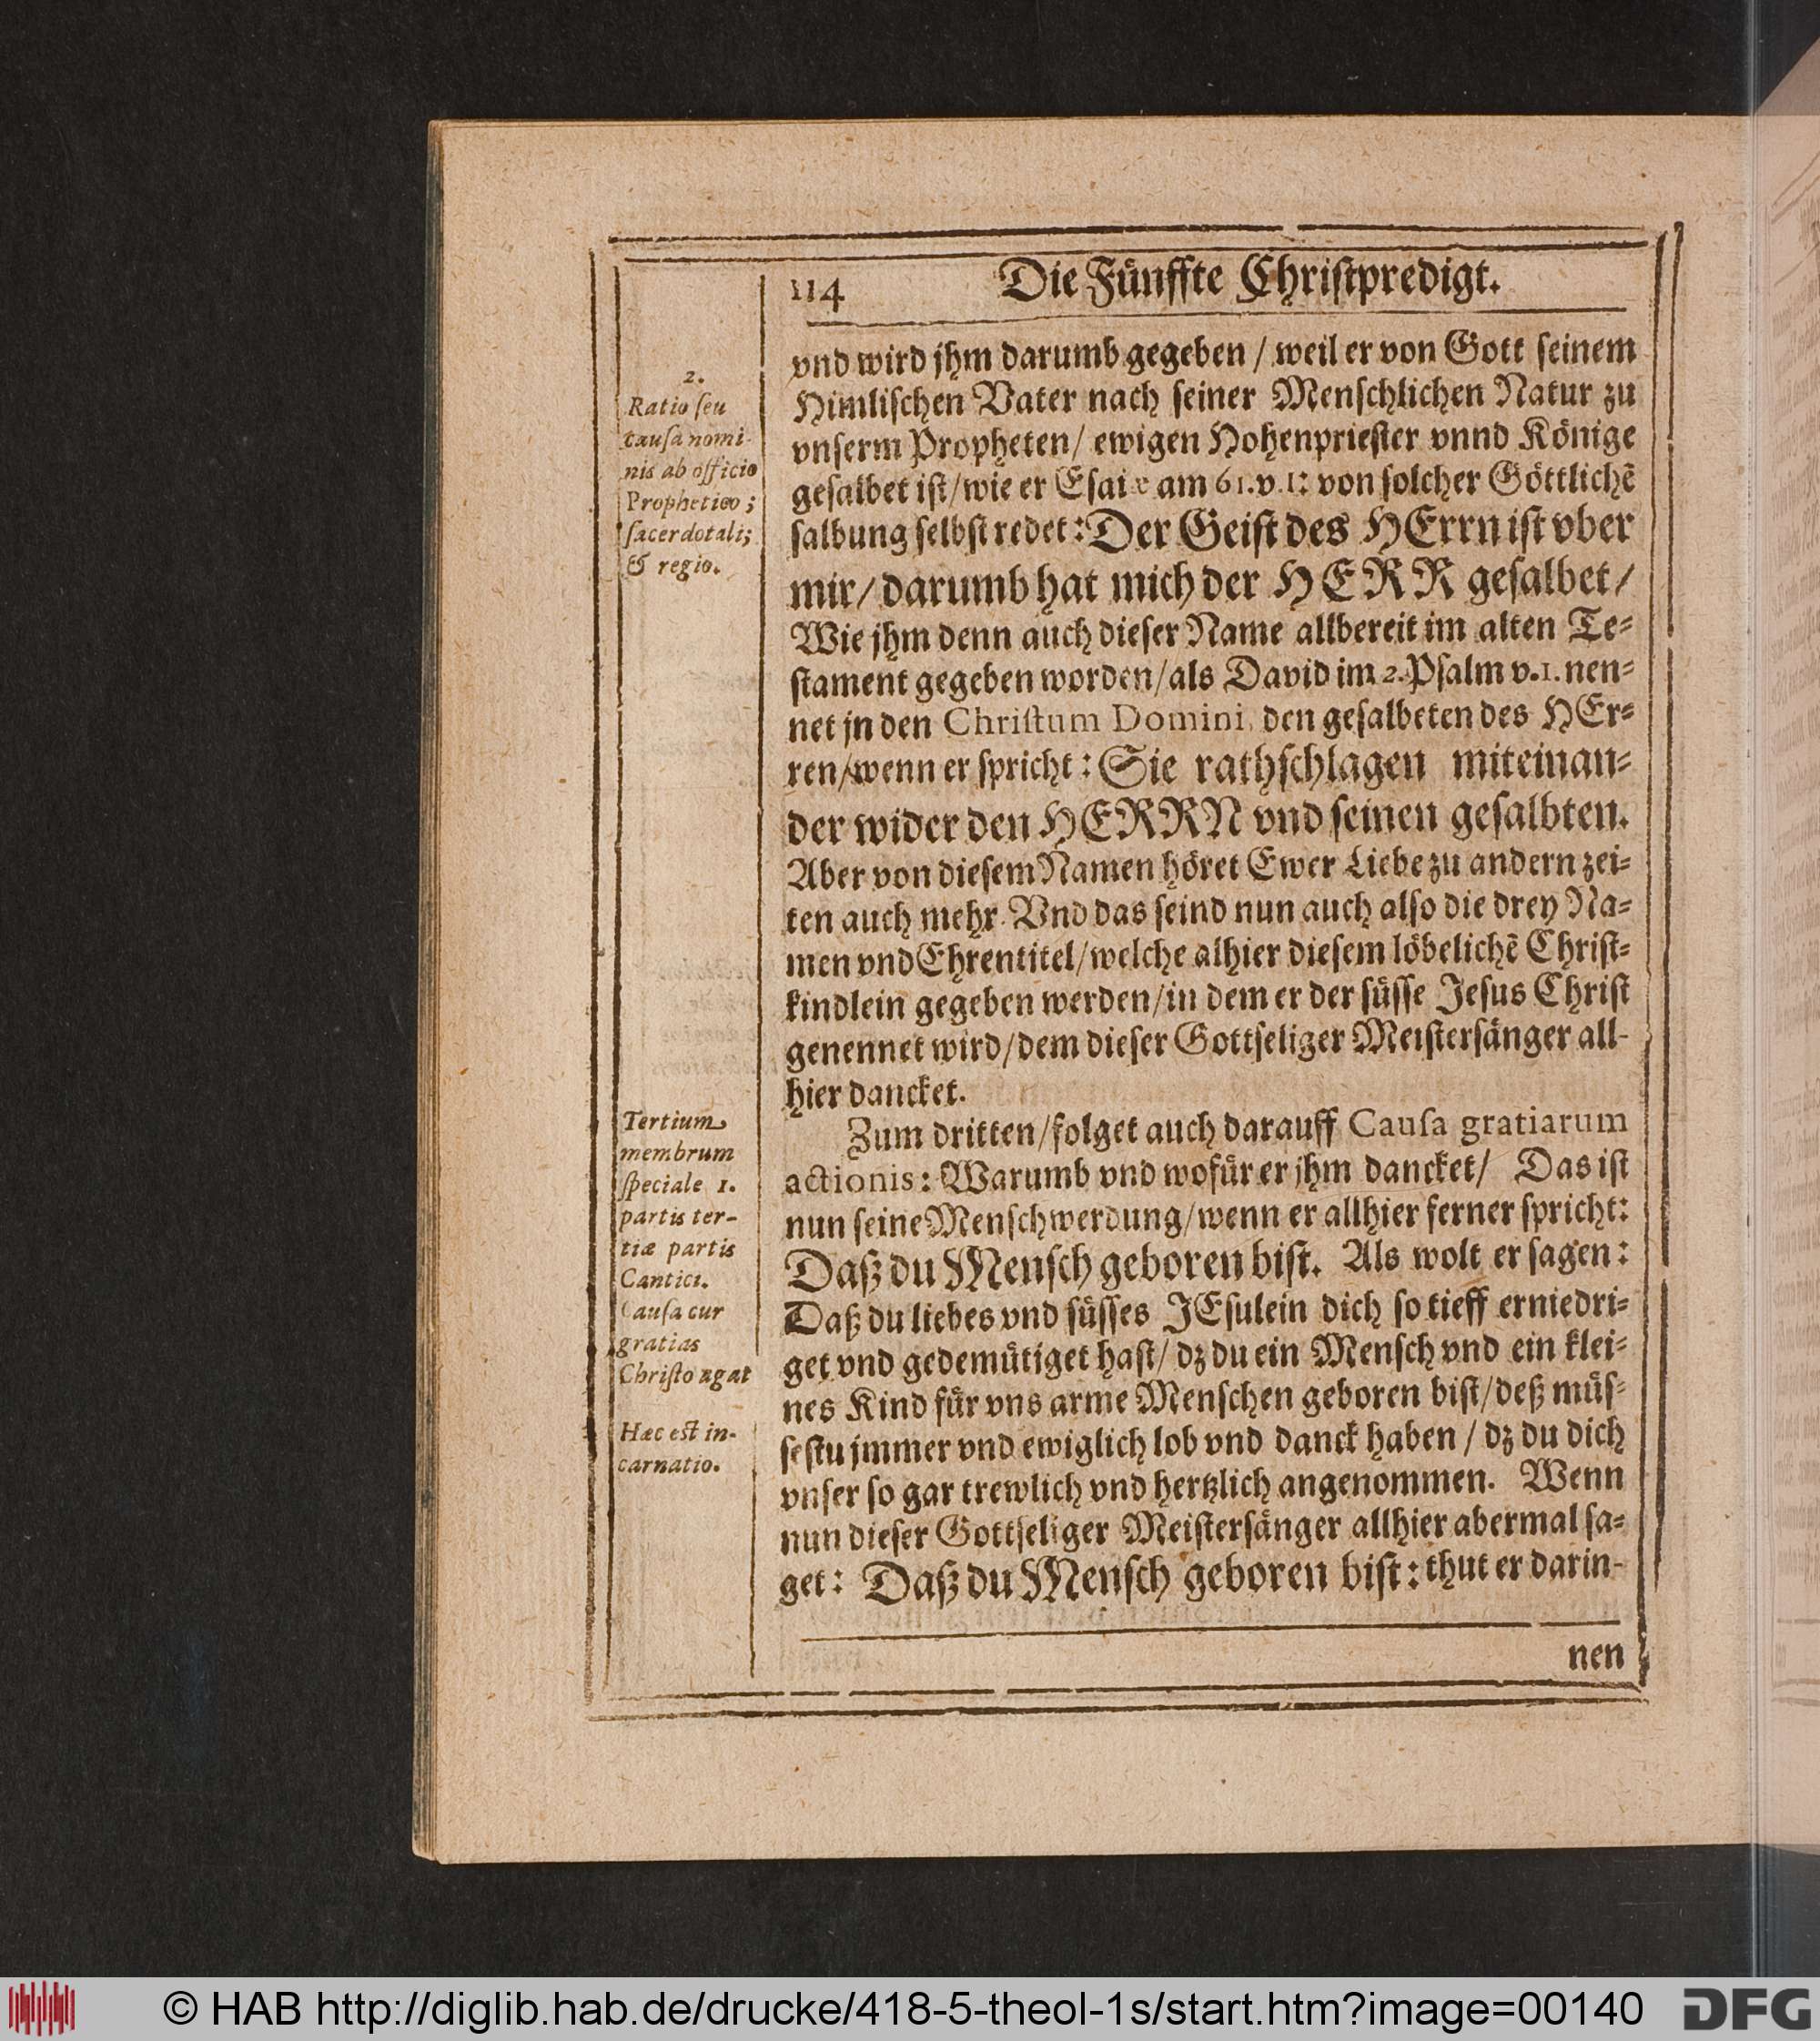 114 Die Fünffte Chriſtpredigt.
vnd wird jhm darumb gegeben / weil er von Gott ſeinem
Himliſchen Vater nach ſeiner Menſchlichen Natur zu
vnſerm Propheten / ewigen Hohenprieſter vnnd Könige
geſalbet iſt / wie er Eſaiæ am 61. v. 1: von ſolcher Göttlichẽ
ſalbung ſelbſt redet: Der Geiſt des HErrn iſt vber
mir / darumb hat mich der HERR geſalbet /
Wie jhm denn auch dieſer Name allbereit im alten Te-
ſtament gegeben worden / als David im 2. Pſalm v. 1. nen-
net jn den Chriſtum Domini, den geſalbeten des HEr-
ren / wenn er ſpricht: Sie rathſchlagen miteinan-
der wider den HERRN vnd ſeinen geſalbten.
Aber von dieſem Namen höret Ewer Liebe zu andern zei-
ten auch mehr. Vnd das ſeind nun auch alſo die drey Na-
men vnd Ehrentitel / welche alhier dieſem löbelichẽ Chriſt-
kindlein gegeben werden / in dem er der ſüſſe Jeſus Chriſt
genennet wird / dem dieſer Gottſeliger Meiſterſänger all-
hier dancket.
Zum dritten / folget auch darauff Cauſa gratiarum
actionis: Warumb vnd wofür er jhm dancket / Das iſt
nun ſeine Menſchwerdung / wenn er allhier ferner ſpricht:
Daß du Menſch geboren biſt. Als wolt er ſagen:
Daß du liebes vnd ſüſſes JEſulein dich ſo tieff erniedri-
get vnd gedemütiget haſt / dz du ein Menſch vnd ein klei-
nes Kind für vns arme Menſchen geboren biſt / deß müſ-
ſeſtu jmmer vnd ewiglich lob vnd danck haben / dz du dich
vnſer ſo gar trewlich vnd hertzlich angenommen. Wenn
nun dieſer Gottſeliger Meiſterſänger allhier abermal ſa-
get: Daß du Menſch geboren biſt: thut er darin-
nen
2.
Ratio ſeu
cauſa nomi-
nis ab officio
Prophetico;
ſacerdotali;
& regio.
Tertium
membrum
ſpeciale 1.
partis ter-
tiæ partis
Cantici.
Cauſa cur
gratias
Chriſto agat
Hæc eſt in-
carnatio.
© HAB http://diglib.hab.de/drucke/418-5-theol-1s/start.htm?image=00140
DFG